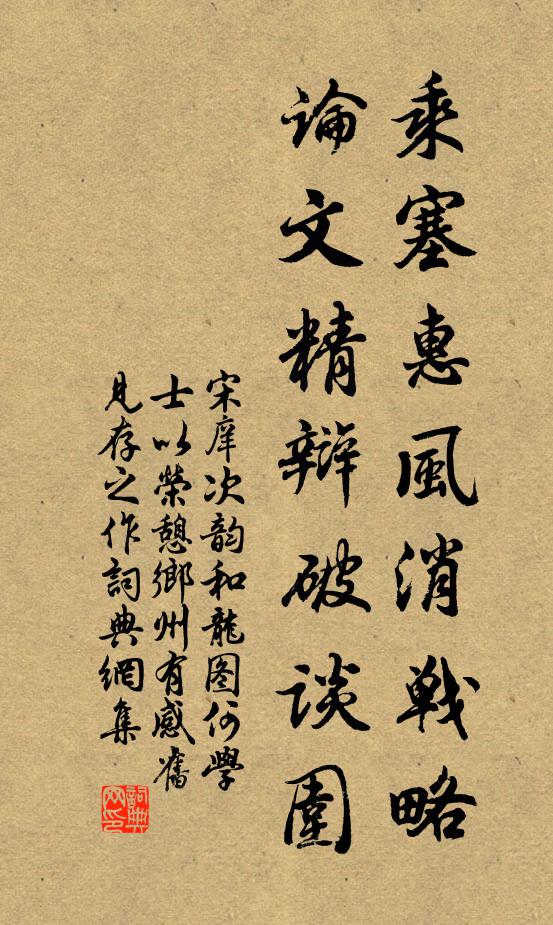 乘塞惠風消戰略
論文精辯破談圍
宋庠次韵和龍图何學
士以榮憩鄉州有感舊
見存之作詞典網集
詞典
网印